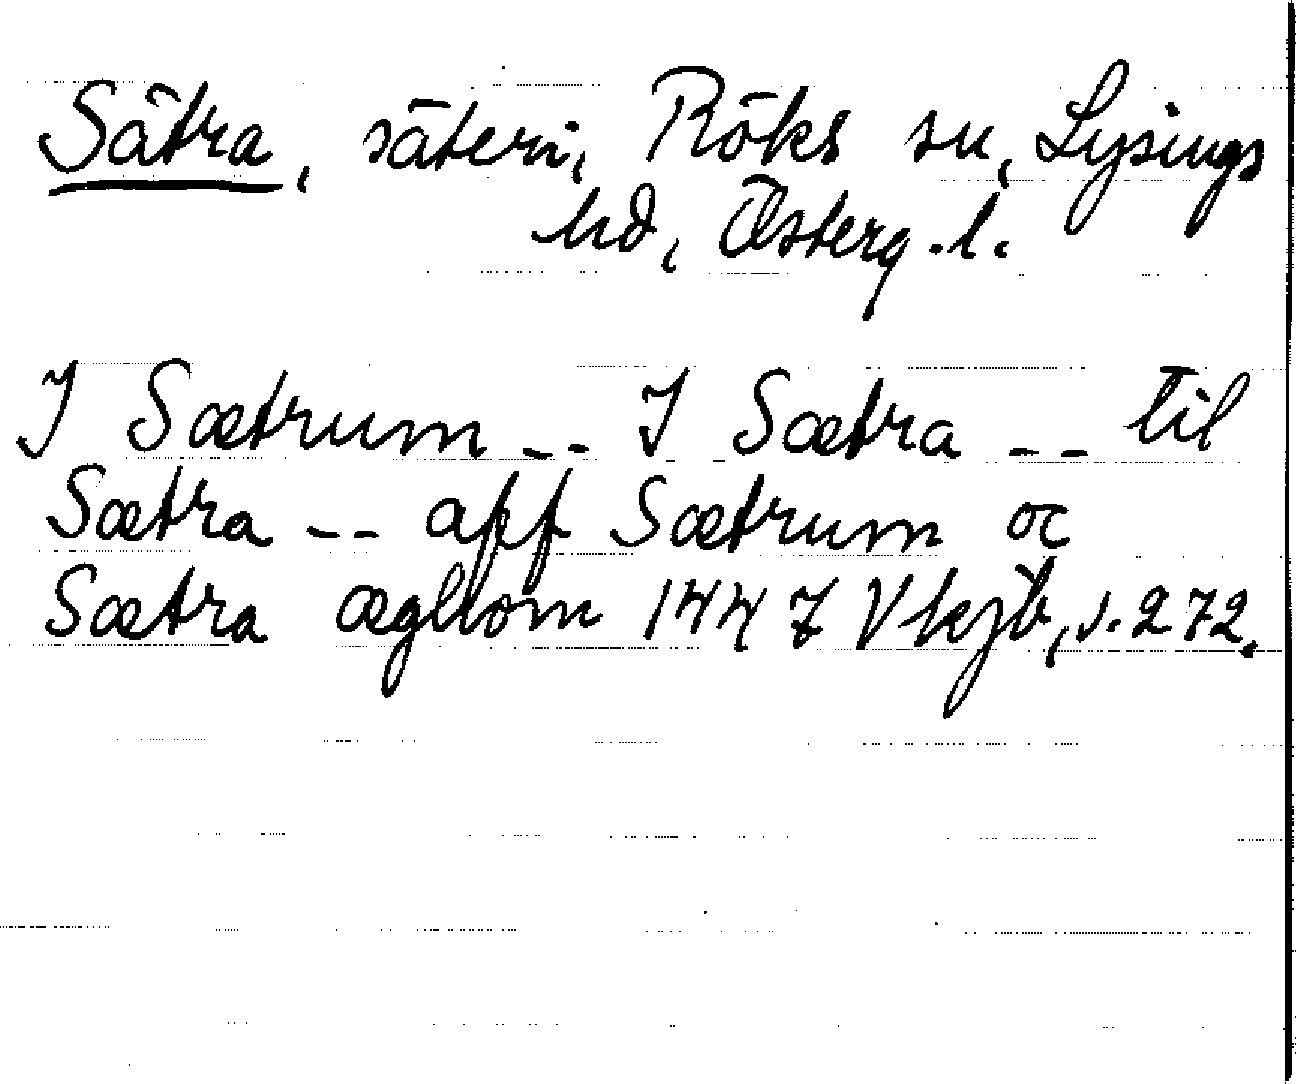 Sätra, säteri, Röks sn, Lysings
hd, Österg. l.
I Sætrum -- I Sætra -- til
Sætra -- aff Sætrum oc
Sætra æghom 1447 Vkjb, s. 272.